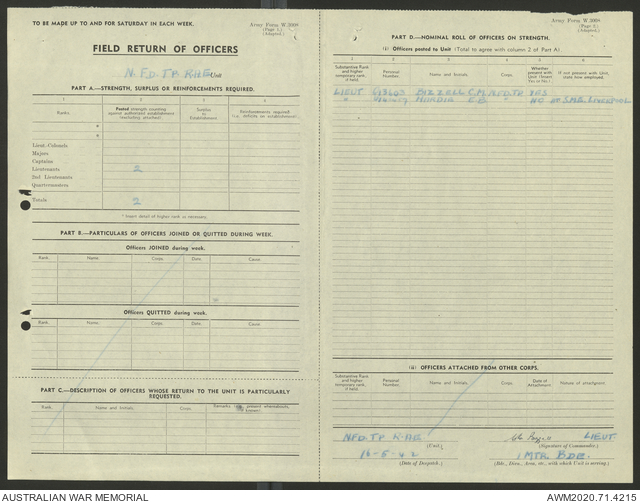 TO BE MADE UP TO AND FOR SATURDAY IN EACH WEEK.
Army Form W.3008
(Page 1.)
(Adapted.)
FIELD RETURN OF OFFICERS
N. FD. TP. R.A.E. Unit
PART A.—STRENGTH, SURPLUS OR REINFORCEMENTS REQUIRED.
1 2 3 4
Ranks. Posted strength counting against authorized establishment (excluding attached). Surplus to Establishment. Reinforcements required (i.e., deficits on establishment).
*
*
Lieut.-Colonels
Majors
Captains
Lieutenants 2
2nd Lieutenants
Quartermasters
Totals 2
* Insert detail of higher rank as necessary.
PART B.—PARTICULARS OF OFFICERS JOINED OR QUITTED DURING WEEK.
Officers JOINED during week.
Rank. Name. Corps. Date. Cause.
Officers QUITTED during week.
Rank. Name. Corps. Date. Cause.
PART C.—DESCRIPTION OF OFFICERS WHOSE RETURN TO THE UNIT IS PARTICULARLY REQUESTED.
Rank. Name and Initials. Corps. Remarks (if present whereabouts, known).
Army Form W.3008
(Adapted.)
PART D.—NOMINAL ROLL OF OFFICERS ON STRENGTH.
(i) Officers posted to Unit (Total to agree with column 2 of Part A)
1 2 3 4 5 6
Substantive Rank and higher temporary rank, if held. Personal Number. Name and Initials. Corps. Whether present with Unit (Insert Yes or No.) If not present with Unit, state how employed.
LIEUT C.M. N.FD.TP. YES
" E.B. " NO S.M.E. LIVERPOOL
(ii) OFFICERS ATTACHED FROM OTHER CORPS.
Substantive Rank and higher temporary rank, if held. Personal Number. Name and Initials. Corps. Date of Attachment. Nature of attachment.
N.FD.TP. R.A.E. LIEUT.
(Unit.) (Signature of Commander.)
16-5-42 1 MTR. BDE.
(Date of Despatch.) (Bde., Divn., Area, etc., with which Unit is serving.)
AUSTRALIAN WAR MEMORIAL
AWM2020.71.4215